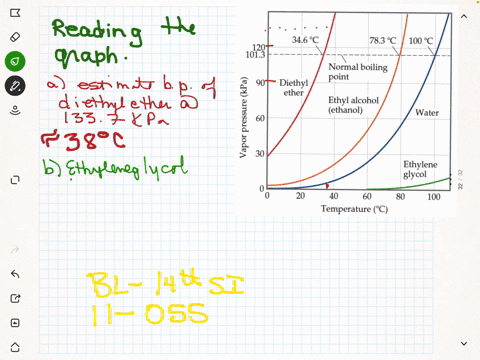 Reading the
graph.
a) estimate b.p. of
diethyl ether @
133.7 kPa
≈38°C
b) Ethyleneglycol
BL- 14th SI
11- OSS
Vapor pressure (kPa)
120
101.3
90
60
30
0
34.6 °C
78.3 °C
100 °C
Normal boiling
point
Diethyl
ether
Ethyl alcohol
(ethanol)
Water
Ethylene
glycol
0
20
40
60
80
100
Temperature (°C)
32 / 32